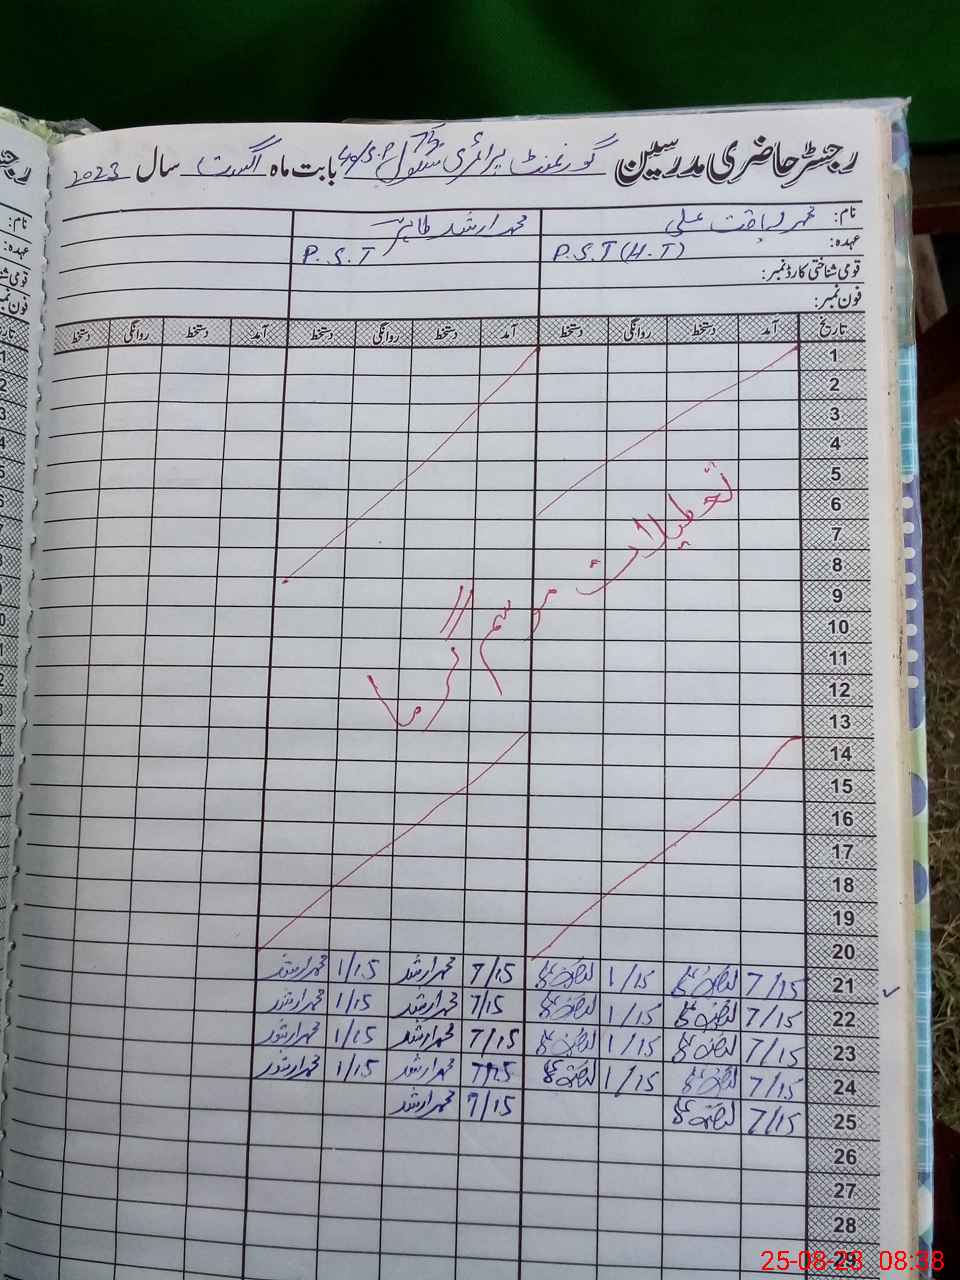 رجسٹر حاضری مدرسین گورنمنٹ پرائمری سکول 73 40/S.P بابت ماہ اگست سال 2023
نام: محمد لیاقت علی محمد ارشد طاہر
عہدہ: P.S.T (H.T) P.S.T
قومی شناختی کارڈ نمبر:
فون نمبر:
تاریخ آمد دستخط روانگی دستخط آمد دستخط روانگی دستخط آمد دستخط روانگی دستخط
1
2
3
4
5
6
7
8
9
10
11
12
13
تعطیلات موسم گرما
14
15
16
17
18
19
20
21 7/15 1/15 7/15 محمد ارشد 1/15 محمد ارشد
22 7/15 1/15 7/15 محمد ارشد 1/15 محمد ارشد
23 7/15 1/15 7/15 محمد ارشد 1/15 محمد ارشد
24 7/15 1/15 7/15 محمد ارشد 1/15 محمد ارشد
25 7/15 7/15 محمد ارشد
26
27
28
29
25-08-23 08:38